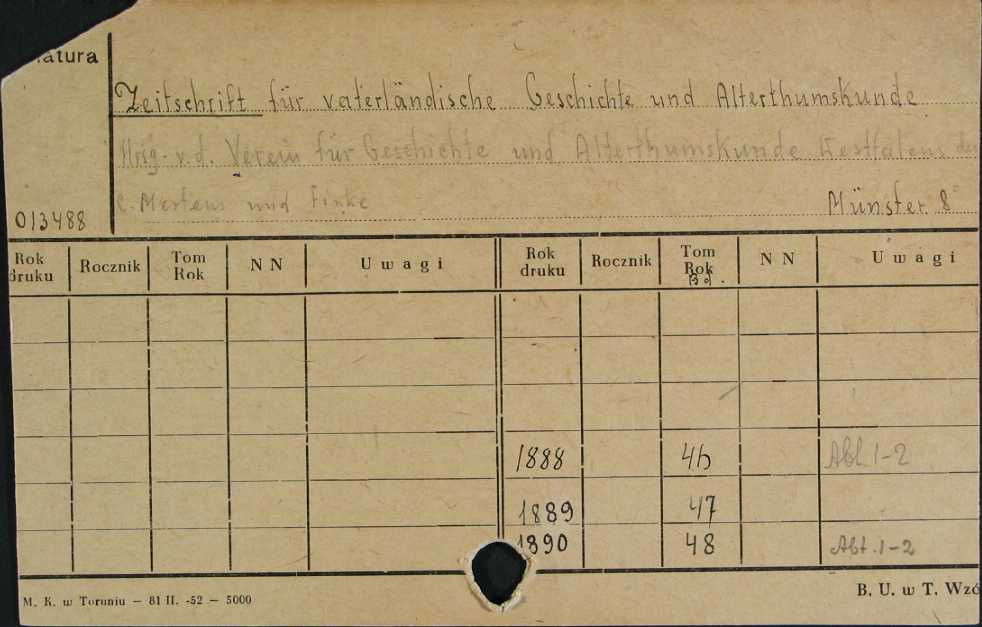 natura
Zeitschrift für vaterländische Geschichte und Alterthumskunde
Hrsg. v. d. Verein für Geschichte und Alterthumskunde Westfalens
C. Mertens und Finke
Münster 8°
013488
Rok druku Rocznik Tom Rok N N Uwagi Rok druku Rocznik Tom Rok Bd. N N Uwagi
1888 46 Abt. 1-2
1889 47
1890 48 Abt. 1-2
M. K. w Toruniu — 81 II. -52 — 5000
B. U. w T.